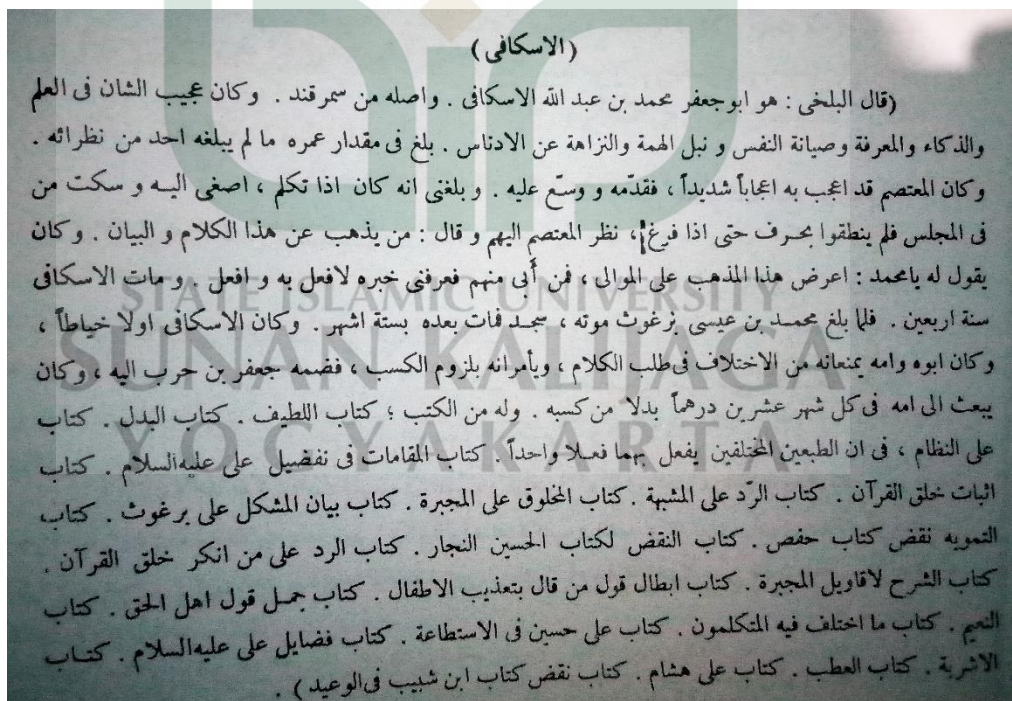 (الاسكافى)
(قال البلخى : هو ابوجعفر محمد بن عبد الله الاسكافى . واصله من سمرقند . وكان عجيب الشان فى العلم
والذكاء والمعرفة وصيانة النفس و نبل الهمة والنزاهة عن الادناس . بلغ فى مقدار عمره ما لم يبلغه احد من نظرائه .
وكان المعتصم قد اعجب به اعجاباً شديداً ، فقدّمه و وسّع عليه . و بلغنى انه كان اذا تكلم ، اصغى اليه و سكت من
فى المجلس فلم ينطقوا بحرف حتى اذا فرغ ، نظر المعتصم اليهم و قال : من يذهب عن هذا الكلام و البيان . و كان
يقول له يامحمد : اعرض هذا المذهب على الموالى ، فمن أبى منهم فعرفنى خبره لافعل به و افعل . و مات الاسكافى
سنة اربعين . فلما بلغ محمد بن عيسى برغوث موته ، سجد فمات بعده بستة اشهر . وكان الاسكافى اولا خياطاً ،
و كان ابوه وامه يمنعانه من الاختلاف فى طلب الكلام ، ويأمرانه بلزوم الكسب ، فضمه جعفر بن حرب اليه ، وكان
يبعث الى امه فى كل شهر عشرين درهماً بدلا من كسبه . وله من الكتب ؛ كتاب اللطيف . كتاب البدل . كتاب
على النظام ، فى ان الطبعين المختلفين يفعل بهما فعلا واحداً . كتاب المقامات فى تفضيل على عليه السلام . كتاب
اثبات خلق القرآن . كتاب الرّد على المشبهة . كتاب المخلوق على المجبرة . كتاب بيان المشكل على برغوث . كتاب
التمويه نقض كتاب حفص . كتاب النقض لكتاب الحسين النجار . كتاب الرد على من انكر خلق القرآن .
كتاب الشرح لاقاويل المجبرة . كتاب ابطال قول من قال بتعذيب الاطفال . كتاب جمل قول اهل الحق . كتاب
النعيم . كتاب ما اختلف فيه المتكلمون . كتاب على حسين فى الاستطاعة . كتاب فضايل على عليه السلام . كتاب
الاشربة . كتاب العطب . كتاب على هشام . كتاب نقض كتاب ابن شبيب فى الوعيد ) .
STATE ISLAMIC UNIVERSITY
SUNAN KALIJAGA
YOGYAKARTA